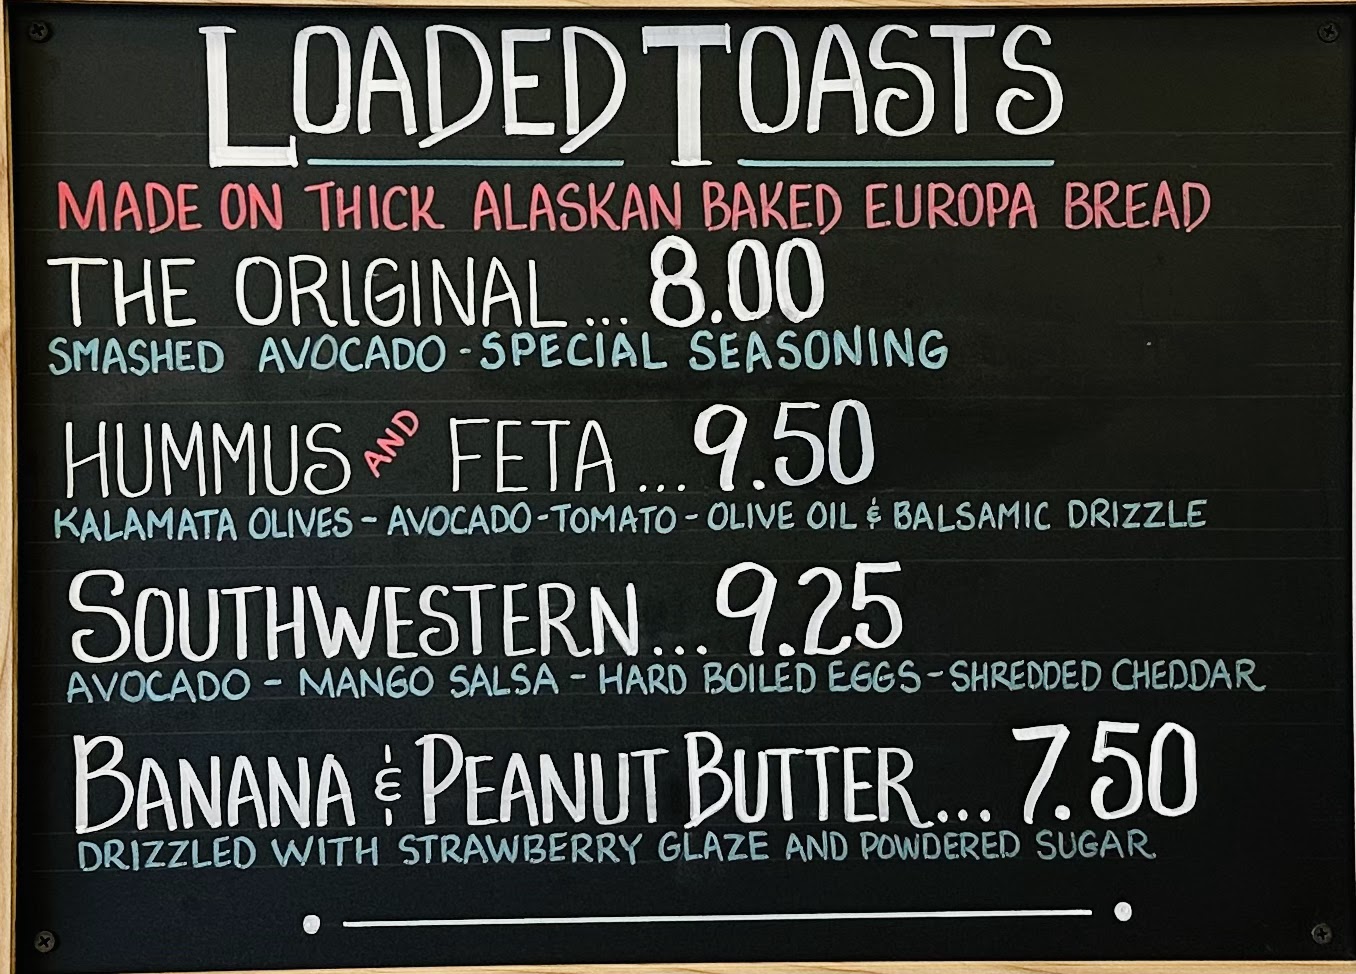 LOADED TOASTS
MADE ON THICK ALASKAN BAKED EUROPA BREAD
THE ORIGINAL... 8.00
SMASHED AVOCADO - SPECIAL SEASONING
HUMMUS AND FETA ... 9.50
KALAMATA OLIVES - AVOCADO - TOMATO - OLIVE OIL & BALSAMIC DRIZZLE
SOUTHWESTERN... 9.25
AVOCADO - MANGO SALSA - HARD BOILED EGGS - SHREDDED CHEDDAR
BANANA & PEANUT BUTTER... 7.50
DRIZZLED WITH STRAWBERRY GLAZE AND POWDERED SUGAR